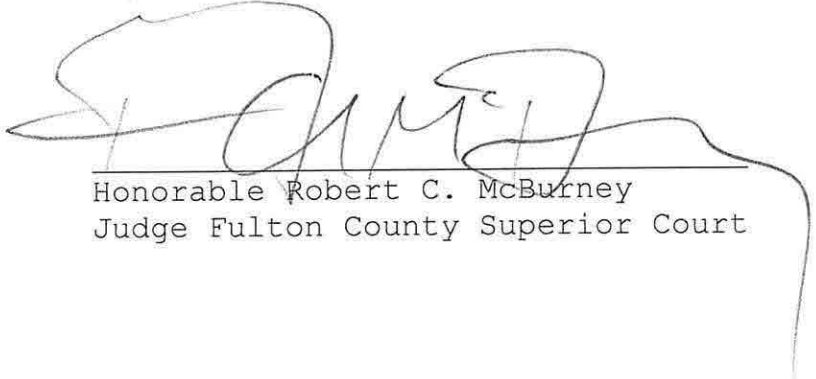 Honorable Robert C. McBurney
Judge Fulton County Superior Court